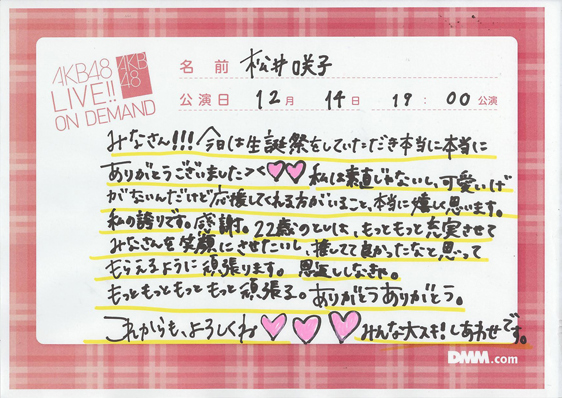 AKB48
LIVE!!
ON DEMAND
AKB
48
名 前 松井咲子
公演日 12月 14日 19:00公演
みなさん!!!今日は生誕祭をしていただき本当に本当に
ありがとうございました><♡♡ 私は素直じゃないし、可愛いげ
がないんだけど応援してくれる方がいること、本当に嬉しく思います。
私の誇りです。感謝。22歳のといは、もっともっと充実させて
みなさんを笑顔にさせたいし、推してて良かったなと思って
もらえるように頑張ります。恩返ししなきゃ。
もっともっともっともっと頑張る。ありがとうありがとう。
これからも、よろしくね♡♡♡みんな大スキ!しあわせです。
DMM.com